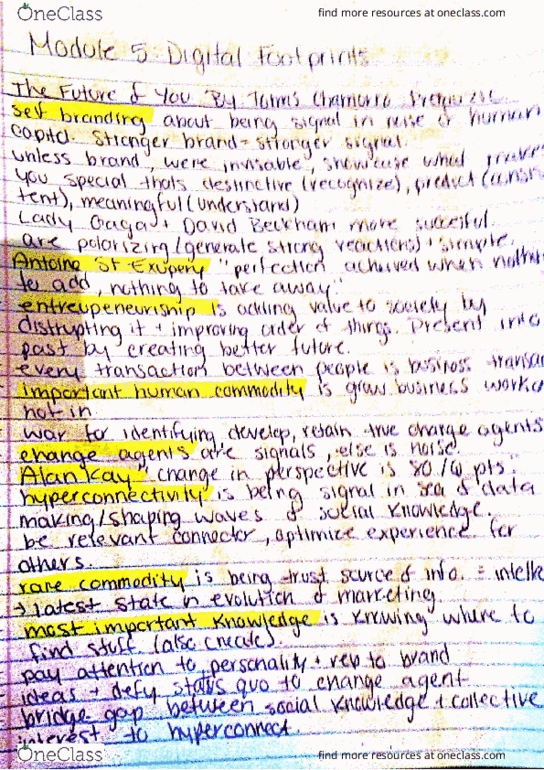 OneClass
find more resources at oneclass.com
Module 5: Digital Footprints
The Future of You By Tomas Chamorro
self branding about being signal in noise of human
capital. Stronger brand = stronger signal.
unless brand, were invisable, showcase what
you special thats destinctive (recognize), predict
tent), meaningful (understand)
Lady Gaga + David Beckham more succesful.
are polarizing (generate strong reactions) + simple.
Antoine St Exupery "perfection acheived when
to add, nothing to take away"
entreupeneurship is adding value to society by
distrupting it + improving order of things. Present into
past by creating better future.
every transaction between people is business
important human commodity is grow business
not in
war for identifying, develop, retain true change agents
change agents are signals, else is noise.
Alan Kay "change in perspective is 80 IQ pts."
hyperconnectivity is being signal in sea of data
making/shaping waves of social knowledge.
be relevant connector, optimize experience for
others.
rare commodity is being trust source of info. =
→ latest state in evolution of marketing
most important knowledge is knowing where to
find stuff (also create)
pay attention to personality + rep to brand
ideas + defy status quo to change agent
bridge gap between social knowledge + collective
interest to hyperconnect.
OneClass
find more resources at oneclass.com